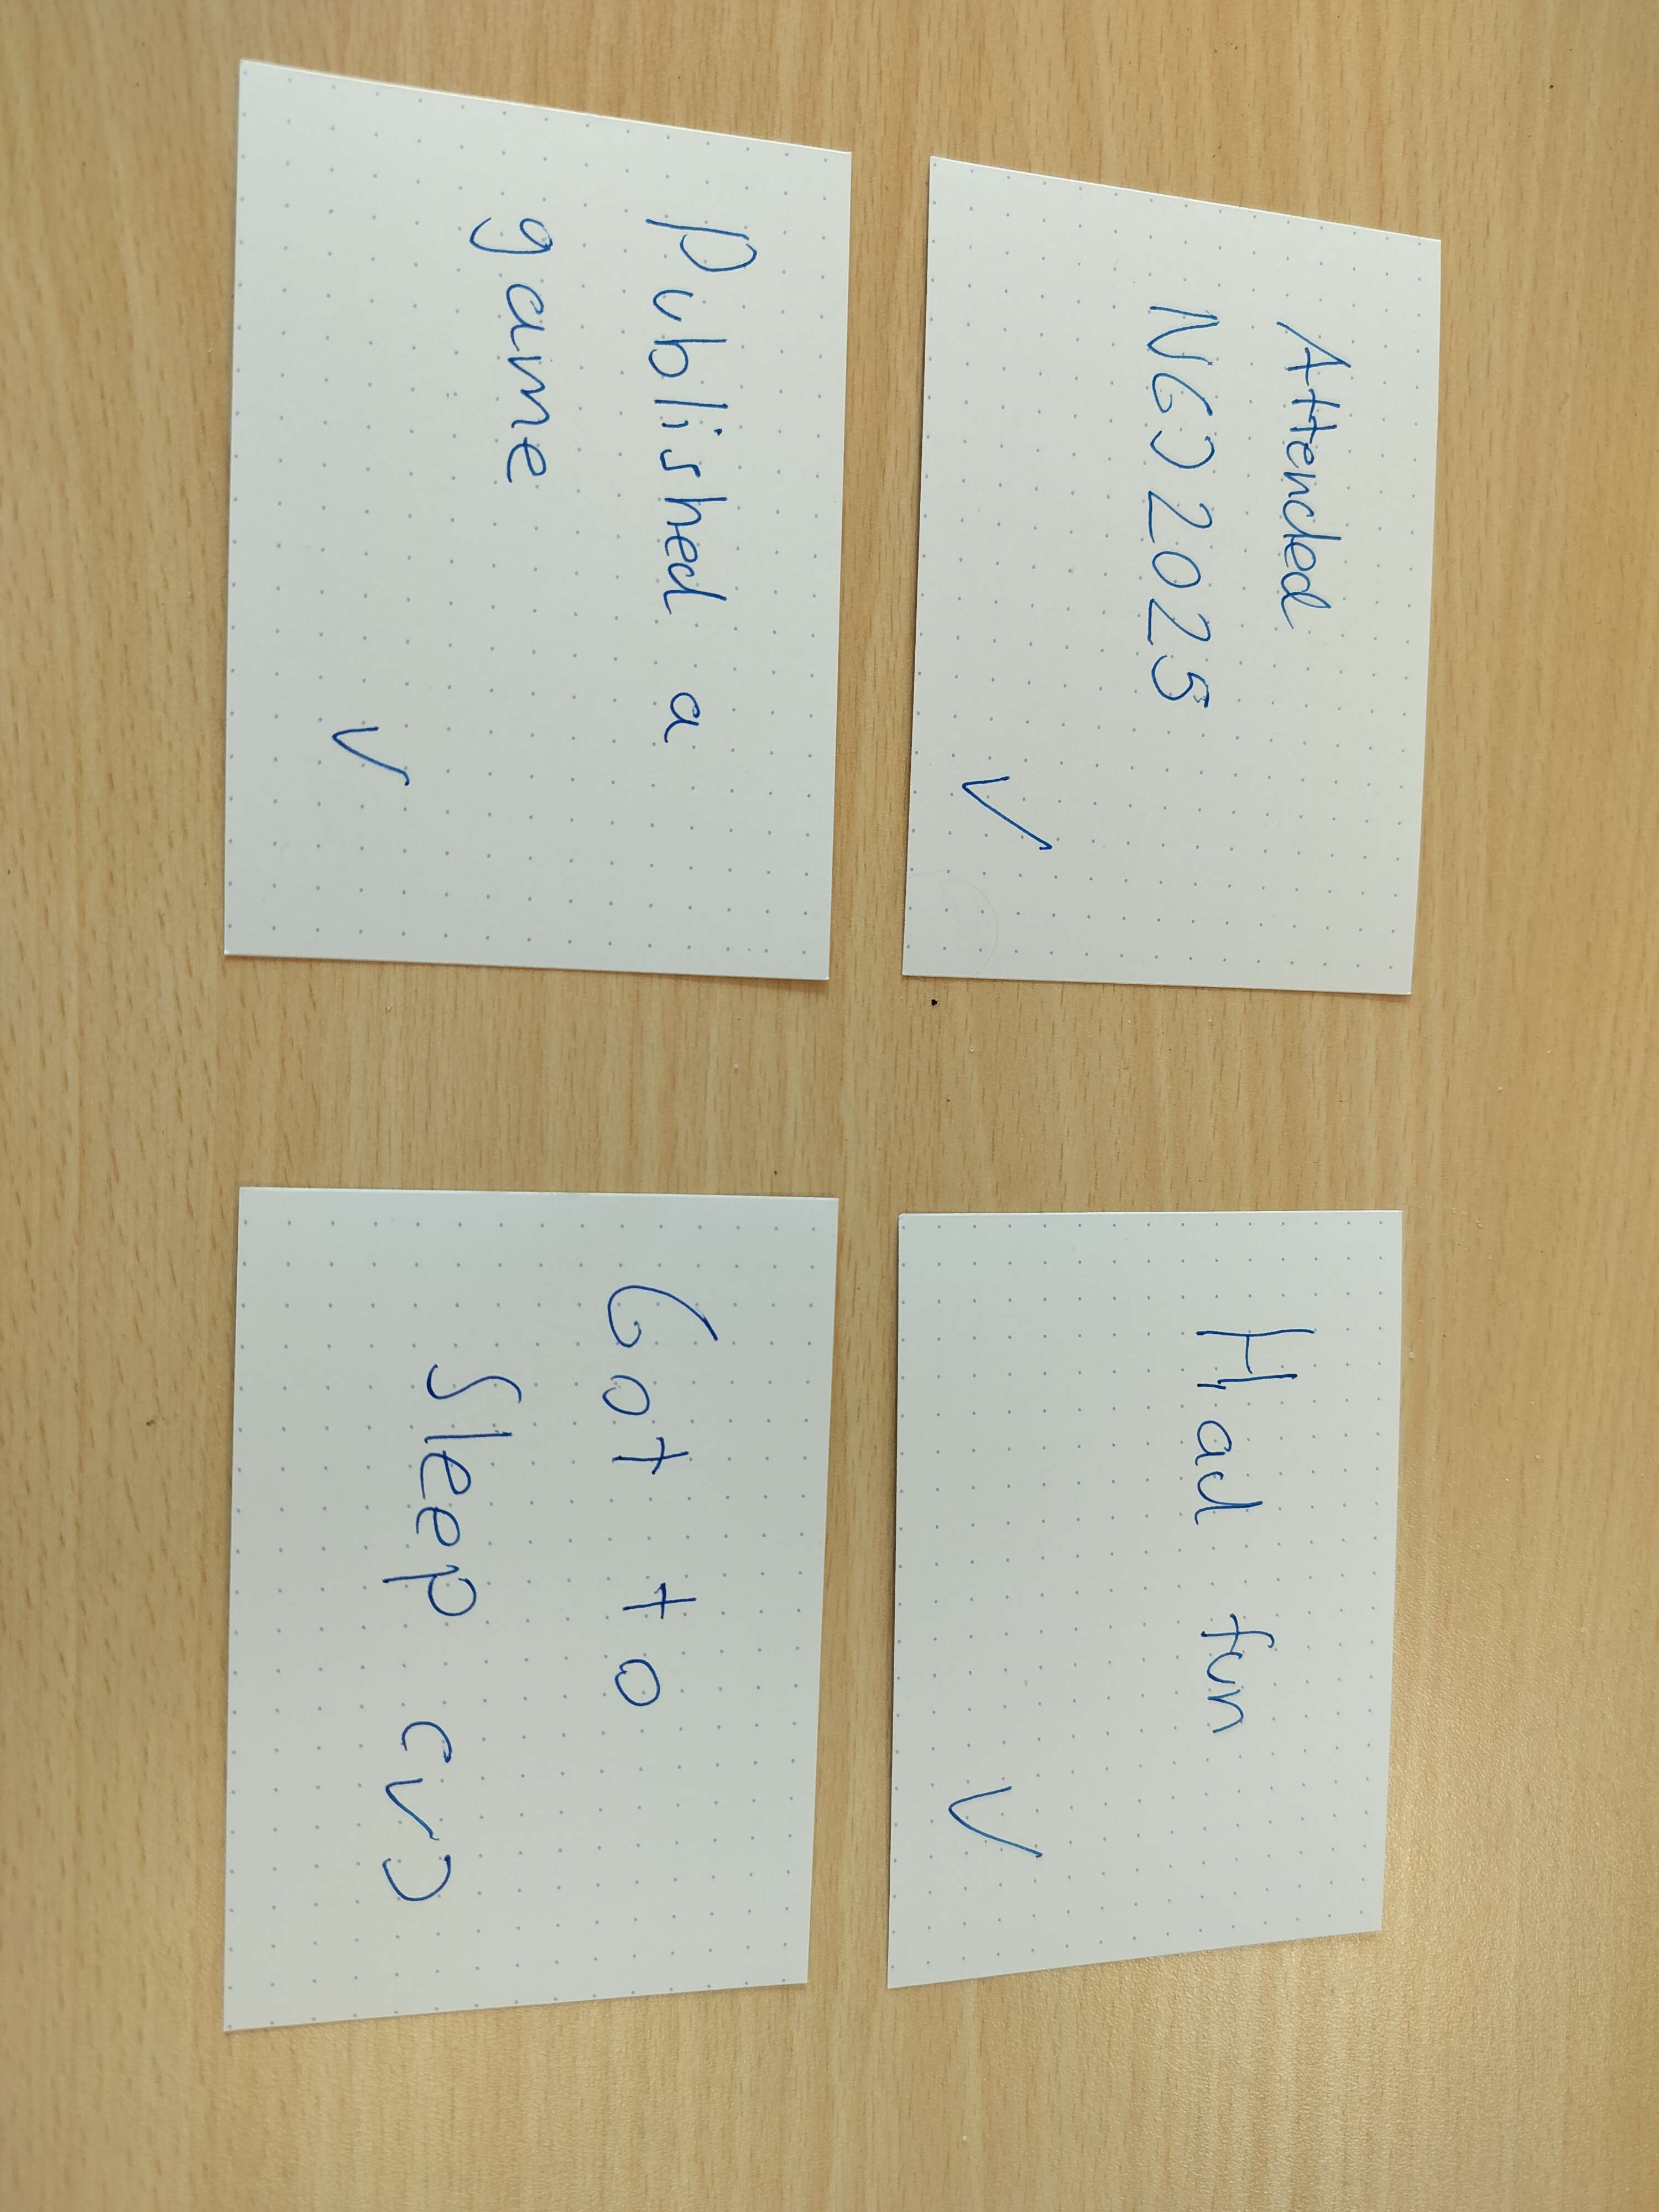 Attended
NGJ 2025
✓
Had fun
✓
Published a
game
✓
Got to
Sleep (✓)